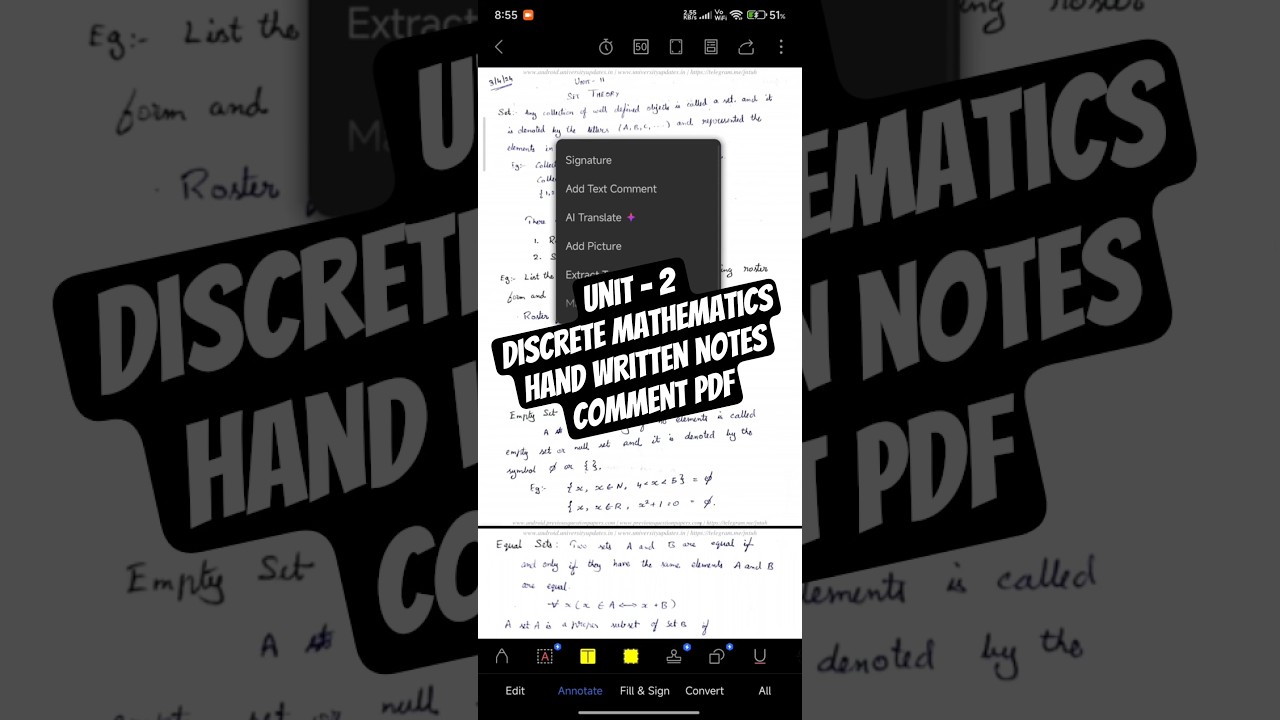 8:55
2.55 KB/s Vo WiFi 51%
50
www.android.universityupdates.in / www.universityupdates.in / https://telegram.me/jntuh
3/4/24
UNIT - II
SET THEORY
Set:- Any collection of well defined objects is called a set. and it
is denoted by the letters (A, B, C, ....) and represented the
elements in
Eg:- Collec
Colle
{1,2
There
1. R
2. S
Eg:- List the
ing roster
form and
Roster
Signature
Add Text Comment
AI Translate
Add Picture
Extract T
UNIT - 2
DISCRETE MATHEMATICS
HAND WRITTEN NOTES
COMMENT PDF
Empty Set
A elements is called
empty set or null set and it is denoted by the
symbol ϕ or { }.
Eg:- {x, x∈N, 4<x<5} = ϕ
{x, x∈R, x²+1=0 = ϕ.
www.android.previousquestionpapers.com / www.previousquestionpapers.com / https://telegram.me/jntuh
www.android.universityupdates.in / www.universityupdates.in / https://telegram.me/jntuh
Equal Sets: Two sets A and B are equal if
and only if they have the same elements A and B
are equal.
∀ x (x ∈ A ⟷ x + B)
A set A is a proper subset of set B if
Edit Annotate Fill & Sign Convert All